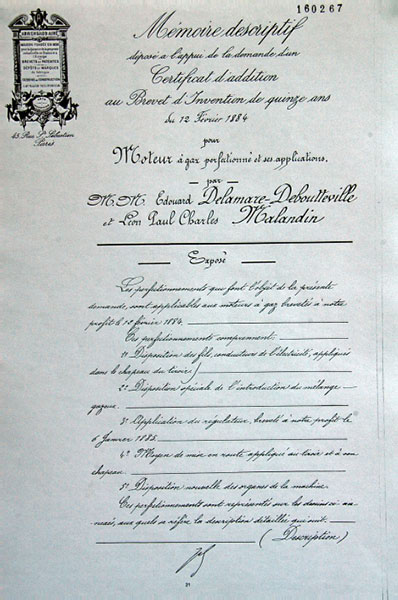 160267
Mémoire descriptif
déposé à l'appui de la demande d'un
Certificat d'addition
au Brevet d'Invention de quinze ans
du 12 Février 1884
pour
Moteur à gaz perfectionné et ses applications.
par
M.M. Edouard Delamare-Deboutteville
et Léon Paul Charles Malandin
45, Rue St Sébastien
Paris
Exposé
Les perfectionnements que font l'objet de la présente
demande, sont applicables aux moteurs à gaz brevetés à notre
profit le 12 février 1884.
Ces perfectionnements comprennent:
1º Disposition des fils, conducteurs de l'électricité, appliqués
dans le chapeau du tiroir;
2º Disposition spéciale de l'introduction du mélange
gazeux.
3º Application du régulateur, breveté à notre profit le
6 Janvier 1883.
4º Moyen de mise en route appliqué au tiroir et à son
chapeau
5º Disposition nouvelle des organes de la machine.
Ces perfectionnements sont représentés sur les dessins ci-an-
nexés, aux quels se réfère la description détaillée qui suit.
(Description)
21